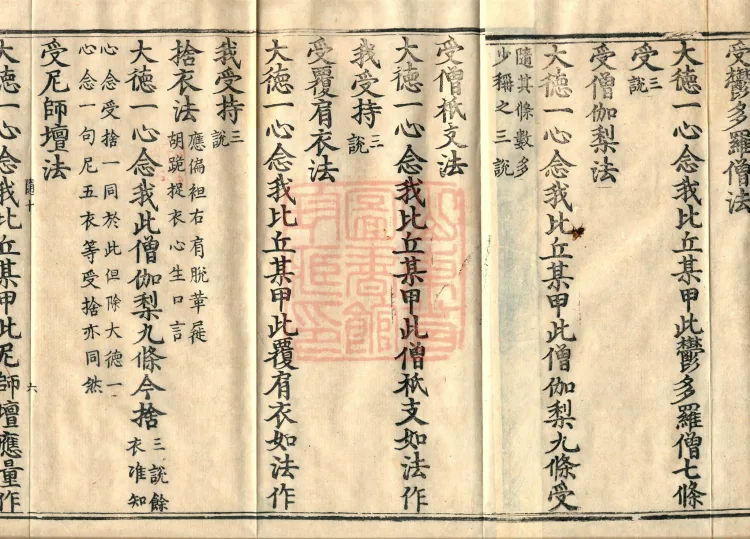 受鬱多羅僧法
大德一心念我比丘某甲此鬱多羅僧七條
受三說
受僧伽梨法
大德一心念我比丘某甲此僧伽梨九條受
隨其條數多
少稱之三說
受僧祇支法
大德一心念我比丘某甲此僧祇支如法作
我受持三說
受覆肩衣法
大德一心念我比丘某甲此覆肩衣如法作
我受持三說
捨衣法應偏袒右肩脫革屣
胡跪捉衣心生口言
大德一心念我此僧伽梨九條今捨三說餘
衣准知
心念受捨一同於此但除大德一
心念一句尼五衣等受捨亦同然
受尼師壇法
大德一心念我比丘某甲此尼師壇應量作
隨十
六